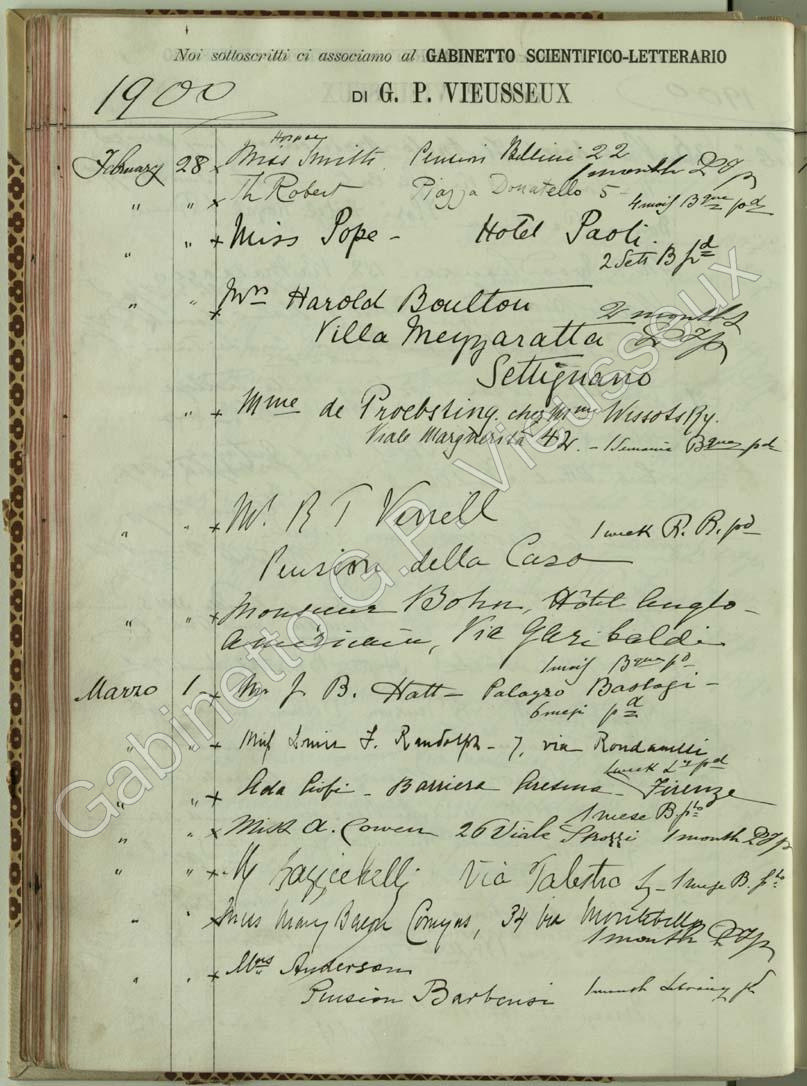 Noi sottoscritti ci associamo al GABINETTO SCIENTIFICO-LETTERARIO
1900 DI G. P. VIEUSSEUX
February 28 x Miss Smith Pension Bellini 22
1 month
" " x Th Robert Piazza Donatello 5
4 mois pd
" " x Miss Pope - Hotel Paoli.
2 Setts B pd
" " x Mrs Harold Boulton 2 months
Villa Mezzaratta
Settignano
" x Mme de Proebsting chez Mme Wissotsky.
Viale Margherita 42. - 1 Semaine pd
" " x Mr R T Verrell
1 week R. B. pd
Pension della Casa
" " x Monsieur Bohn, Hôtel Anglo-
américain, Via Garibaldi
1 mois pd
Marzo 1 - x Mr J. B. Hatt - Palazzo Bastogi -
6 mesi pd
" " x Miss Louis F. Randolph - 7, via Rondinelli
1 week pd
" " x Ada Ciofi - Barriera - Firenze
1 mese B. pto
" " x Miss A. Cowen 26 Viale Strozzi 1 month
" " x Via Palestro 1 mese B. pto
" " x Miss Mary Bacon Comyns, 34 Via Montebello
1 month
" " x Mrs Anderson
Pension Barbensi 1 month
Gabinetto G.P. Vieusseux